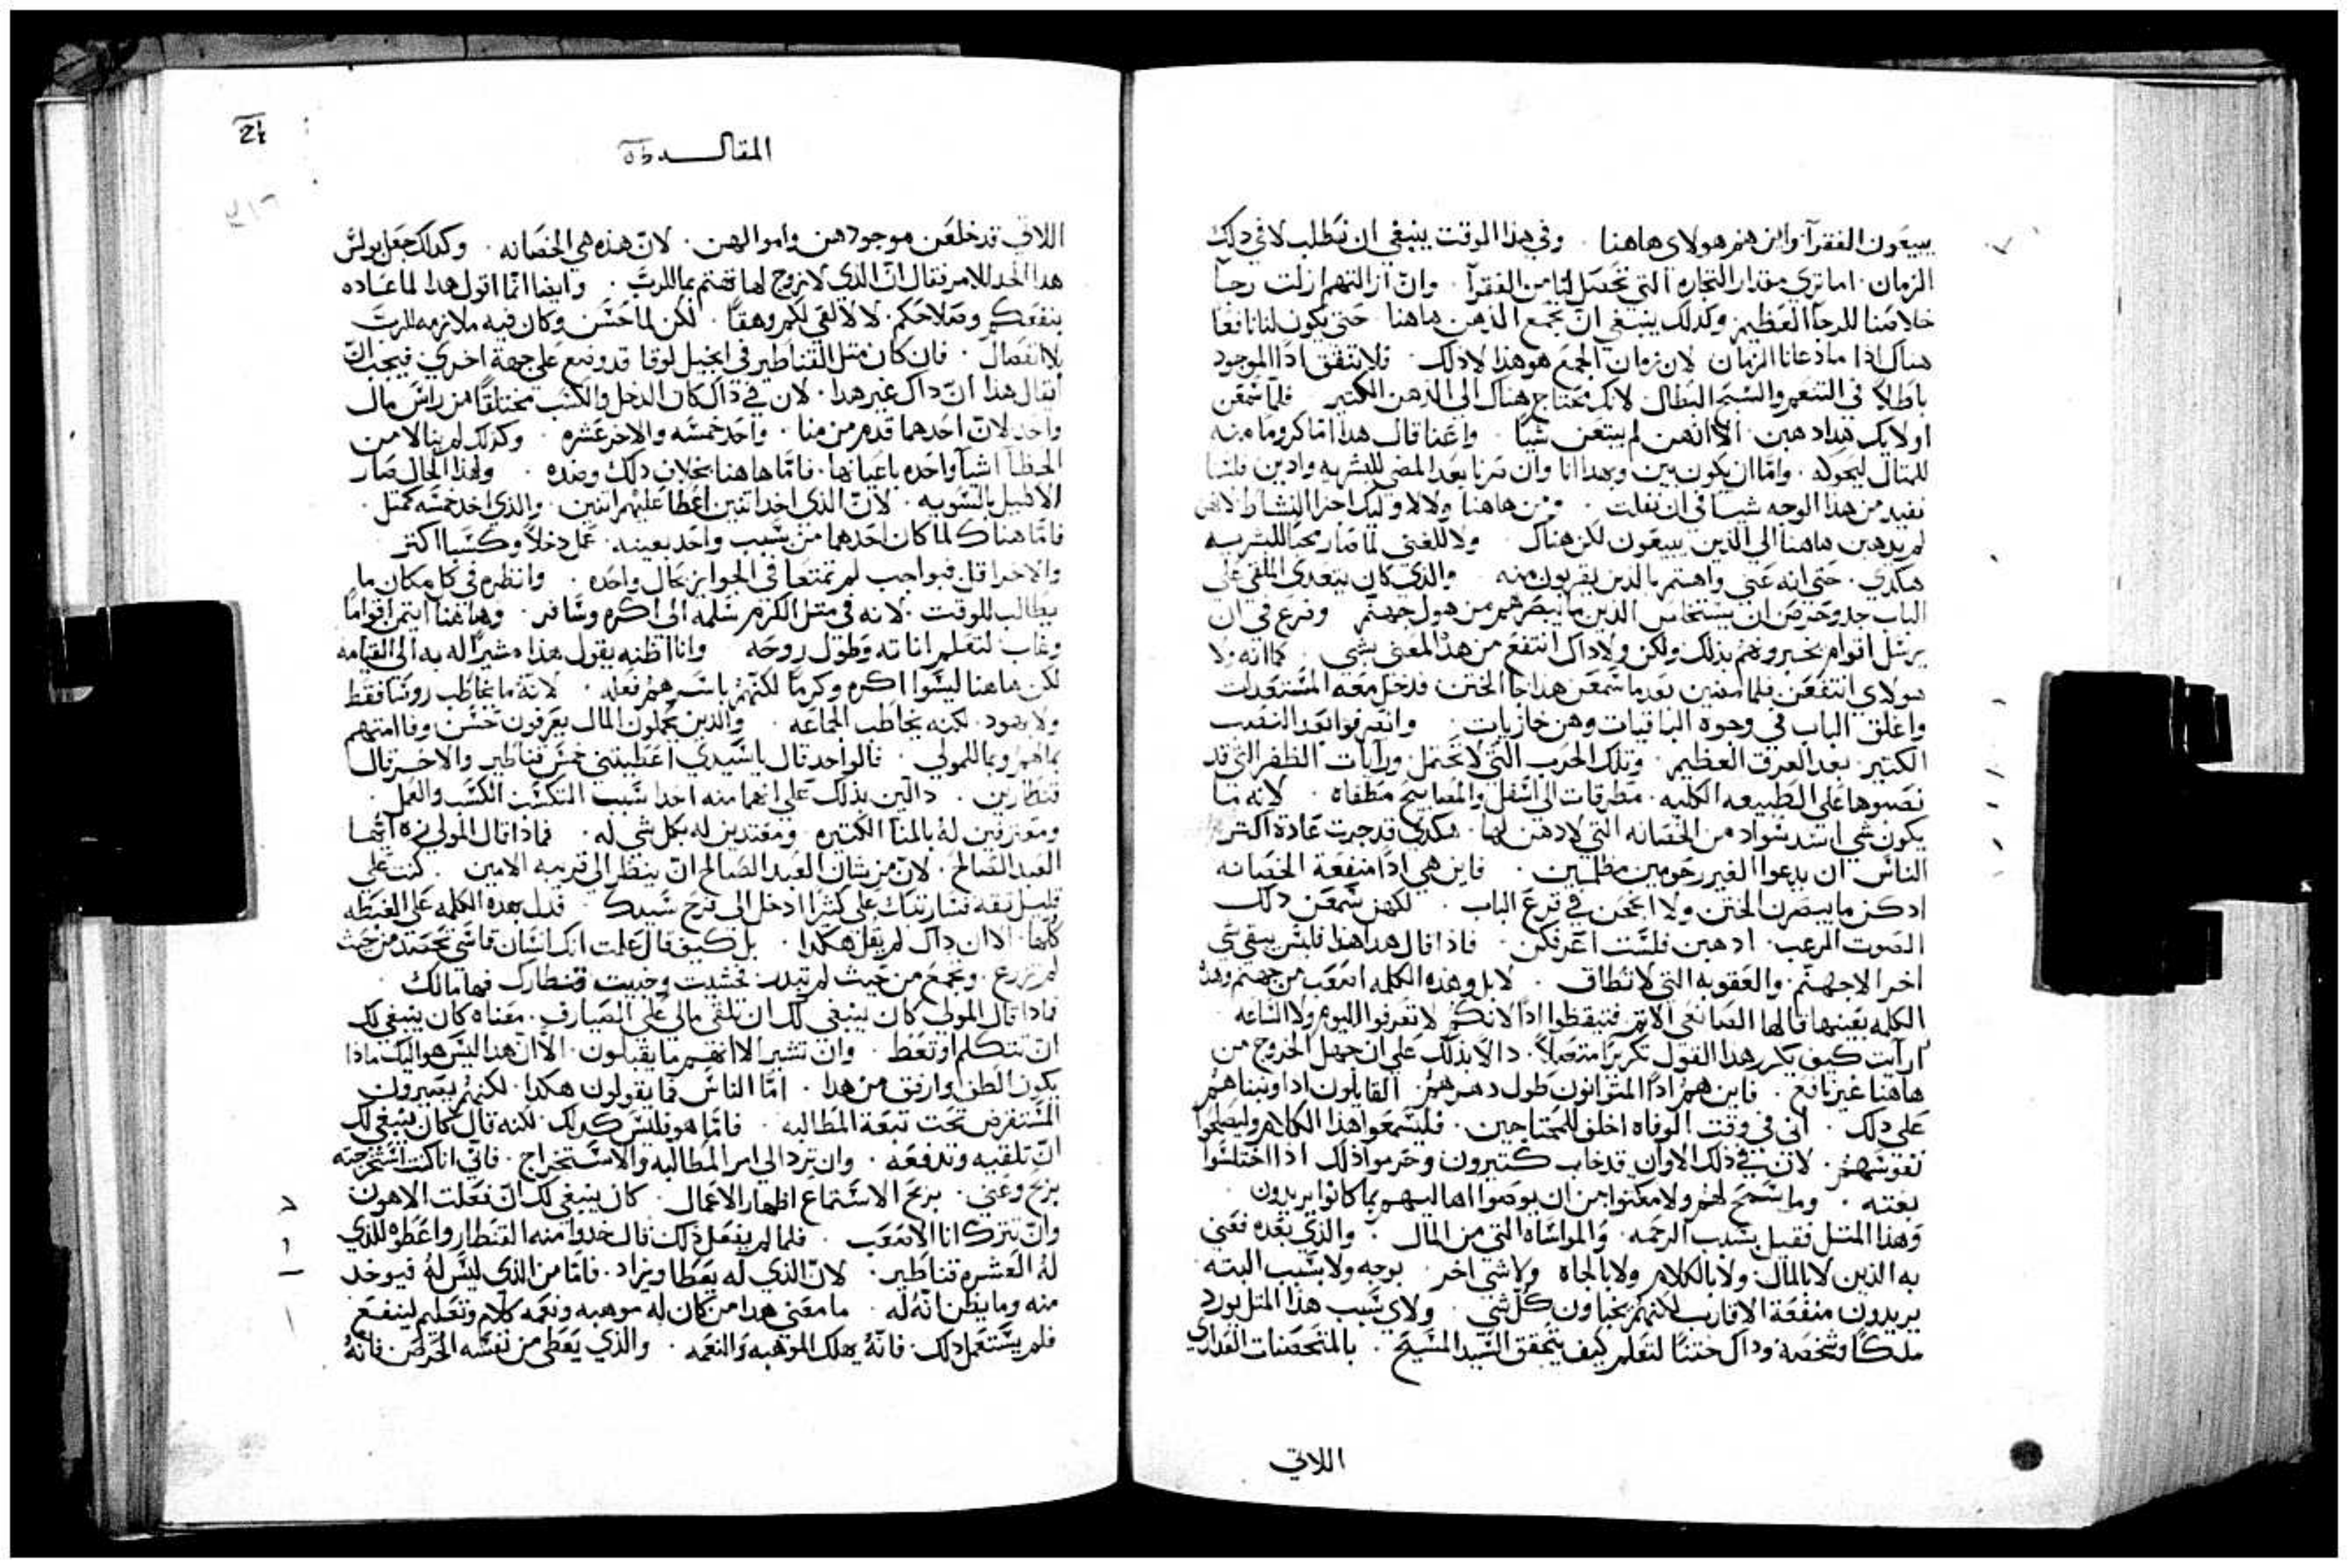 يبيعون الفقرآ. واين هم هولاي هاهنا . وفي هذا الوقت ينبغي ان نطلب لا في دلك
الزمان . اما تري مقدار التجاره التي تحصل لنا من الفقرآ . وان ازالتهم ازلت رجآ
خلاصنا للرجآ العظيم وكذلك ينبغي ان نجمع الدهن هاهنا حتى يكون لنا نافعا
هناك اذا ما دعانا الزمان لان زمان الجمع هو هذا لا ذلك . فلا تنفق اذا الموجود
باطلا في التنعم والسبح البطال لانك تحتاج هناك الى الدهن الكتير فلما سمعن
اوليك هدا دهبن . الا انهن لم يبتعن شيا . وانما قال هدا اما كروما منه
للمتال ليحوله . واما ان يكون يبين وبهدا انا وان صرنا بعد المضي للبشريه وادين فلسنا
نفيد من هذا الوجه شيا في ان نفلت . ومن هاهنا ولا لاوليك اجزا النشاط لانهن
لم يدهبن هاهنا الي الدين يبيعون لكن هناك . ولا للغني لما صار محبا للبشريه
هكدي . حتي انه عني واهتم بالدين يقربون منه . والذي كان يتعدي الملقي علي
الباب جد وحرص ان يستخلص الدين ما يبصرهم من هول جهنم وضرع في ان
يرسل اقوام يخبروهم بذلك ولكن ولا داك انتفع من هذا المعني بشي . كما انه ولا
هولاي انتفعن فلما مضين بعد ما سمعن هدا جا الختن فدخل معه المستعدات
واغلق الباب في وجوه الباقيات وهن خازيات . وانصرفوا بعد التعب
الكتير . بعد العرق العظيم . وتلك الحرب التي لا تحتمل ورايات الظفر التي قد
نصبوها علي الطبيعه الكليه . مطرقات الى اسفل والمصابيح مطفاه . لانه ما
يكون شي اشد سواد من الحصانه التي لا دهن لها . هكدي قد جرت عادة اكتر
الناس ان يدعوا الغير رحومين مظلمين . فاين هي اذا منفعة الحصانه
اد كن ما يبصرن الختن ولا انجحن في قرع الباب . لكنهن سمعن دلك
الصوت المرعب . ادهبن فلست اعرفكن . فاذا قال هدا هذا فليس يبقي شي
اخر الا جهنم . والعقوبه التي لا تطاق . لا بل وهذه الكلمه اصعب من جهنم وهذه
الكلمه بعينها قالها لصانعي الاتم فتيقظوا اذا لانكم لا تعرفوا اليوم ولا الساعه
ارايت كيف يكرر هذا القول تكريرا متصلا . دالا بذلك علي ان جهل الخروج من
هاهنا غير نافع . فاين هم اذا المتوانون طول دهرهم . القايلون ادا وبخناهم
علي دلك . اني في وقت الوفاه اخلف للمحتاجين . فليسمعوا هذا الكلام وليصلحوا
نفوسهم . لان في ذلك الاوان قد خاب كتيرون وحرموا ذلك اذا اختلسوا
بغته . وما سمح لهم ولا مكنوا من ان يوصوا اهاليهم بما كانوا يريدون .
وهذا المتل فقيل بسبب الرحمه . والمواساه التي من المال . والذي بعده فعني
به الذين لا بالمال ولا بالكلام ولا بالجاه ولا شي اخر . بوجه ولا بسبب البته
يريدون منفعة الاقارب لكنهم يخباون كل شي . ولاي سبب هذا المتل يورد
ملكا شخصه وداك ختنا لتعلم كيف يتحقق السيد المسيح . بالمتحصنات العداري
اللاتي
المقاله
اللاتي قد خلعن موجودهن واموالهن . لان هذه هي الحصانه . وكذلك جعل بولس
هذا الحد للامر فقال ان الذي لا تزوج لها تهتم بما للرب . وايضا انما اقول هدا لما عاده
بنفعكم وصلاحكم . لا لالقي لكم وهقا . لكن لما حسن وكان فيه ملازمه للرب
بلا انفصال . فان كان متل القناطير في انجيل لوقا قد وضع علي جهة اخري . فيجب ان
يقال هذا ان داك غير هدا . لان في داك كان الدخل والكسب مختلفا من راس مال
واحد لان احدهما قدم من منا . واحد خمسه والاخر عشره . وكذلك لم ينالا من
الحظ اشيا واحده باعيانها . فاما هاهنا بخلاف دلك وضده . ولهذا الحال صار
الاكليل بالسويه . لان الذي اخد اتنين اعطا عليهم اتنين . والذي اخد خمسه كمتل .
فاما هناك لما كان احدهما من سبب واحد بعينه . عمل دخلا وكسبا اكتر
والاخر اقل فبواجب لم تمتعا في الجوايز بحال واحده . وانظره في كل مكان ما
يطالب للوقت . لانه في متل الكرم سلمه الى اكره وسافر . وهاهنا ايتمن اقواما
وغاب لتعلم اناته وطول روحه وانا اظنه يقول هذا مشيرا له به الي القيامه
لكن هاهنا ليسوا اكره وكرما لكنهم باسرهم فعله . لانه ما يخاطب روسا فقط
ولا يهود . لكنه يخاطب الجماعه . والذين يحملون المال يعرفون حسن وفا امتهم
بمالهم وبما للمولي . فالواحد قال يا سيدي اعطيتني خمس قناطير والاخر قال
قنطارين . دالين بذلك علي انهما منه اخدا سبب التكسب الكسب والعمل .
ومعترفين له بالمنا الكتيره ومعتدين له بكل شي له . فماذا قال المولي نعم ايها
العبد الصالح . لان من شان العبد الصالح ان ينظر الى قريبه الامين . كنت علي
قليل تقه فسارتبك علي كتير ادخل الى فرح سيدك . فدل بهده الكلمه علي الغبطه
كلها . الا ان داك لم يقل هكدا . بل كيف قال علمت انك انسان قاسي تحصد من حيث
لم تزرع . وتجمع من حيث لم تبدر فخشيت وخبيت قنطارك فها مالك
فاذا قال المولي كان ينبغي لك ان تلقي مالي علي الصيارف . معناه كان ينبغي لك
ان تتكلم او تعظ . وان تشير الا انهم ما يقبلون . الا ان هدا ليس هو اليك ماذا
يكون الطف وارفق من هدا . اما الناس فما يقولون هكدا . لكنهم يصيرون
المستقرض تحت تبعة المطالبه . فاما هو فليس كدلك . لكنه قال كان ينبغي لك
ان تلقيه وتدفعه . وان ترد الي امر المطالبه والاستخراج . فاني انا كنت استخرجته
بربح وعني . بربح الاستماع اظهار الاعمال . كان ينبغي لك ان تفعلت الاهون
وان تترك انا الاصعب . فلما لم يفعل دلك قال خدوا منه القنطار واعطوه للذي
له العشره قناطير . لان الذي له يعطا ويزاد . فاما من الذي ليس له فيوخد
منه وما يظن انه له . ما معني هدا من كان له موهبه ونعمه كلام وتعليم لينفع
فلم يستعمل دلك . فانه يهلك الموهبه والنعمه . والذي يعطي من نفسه الحرص فانه